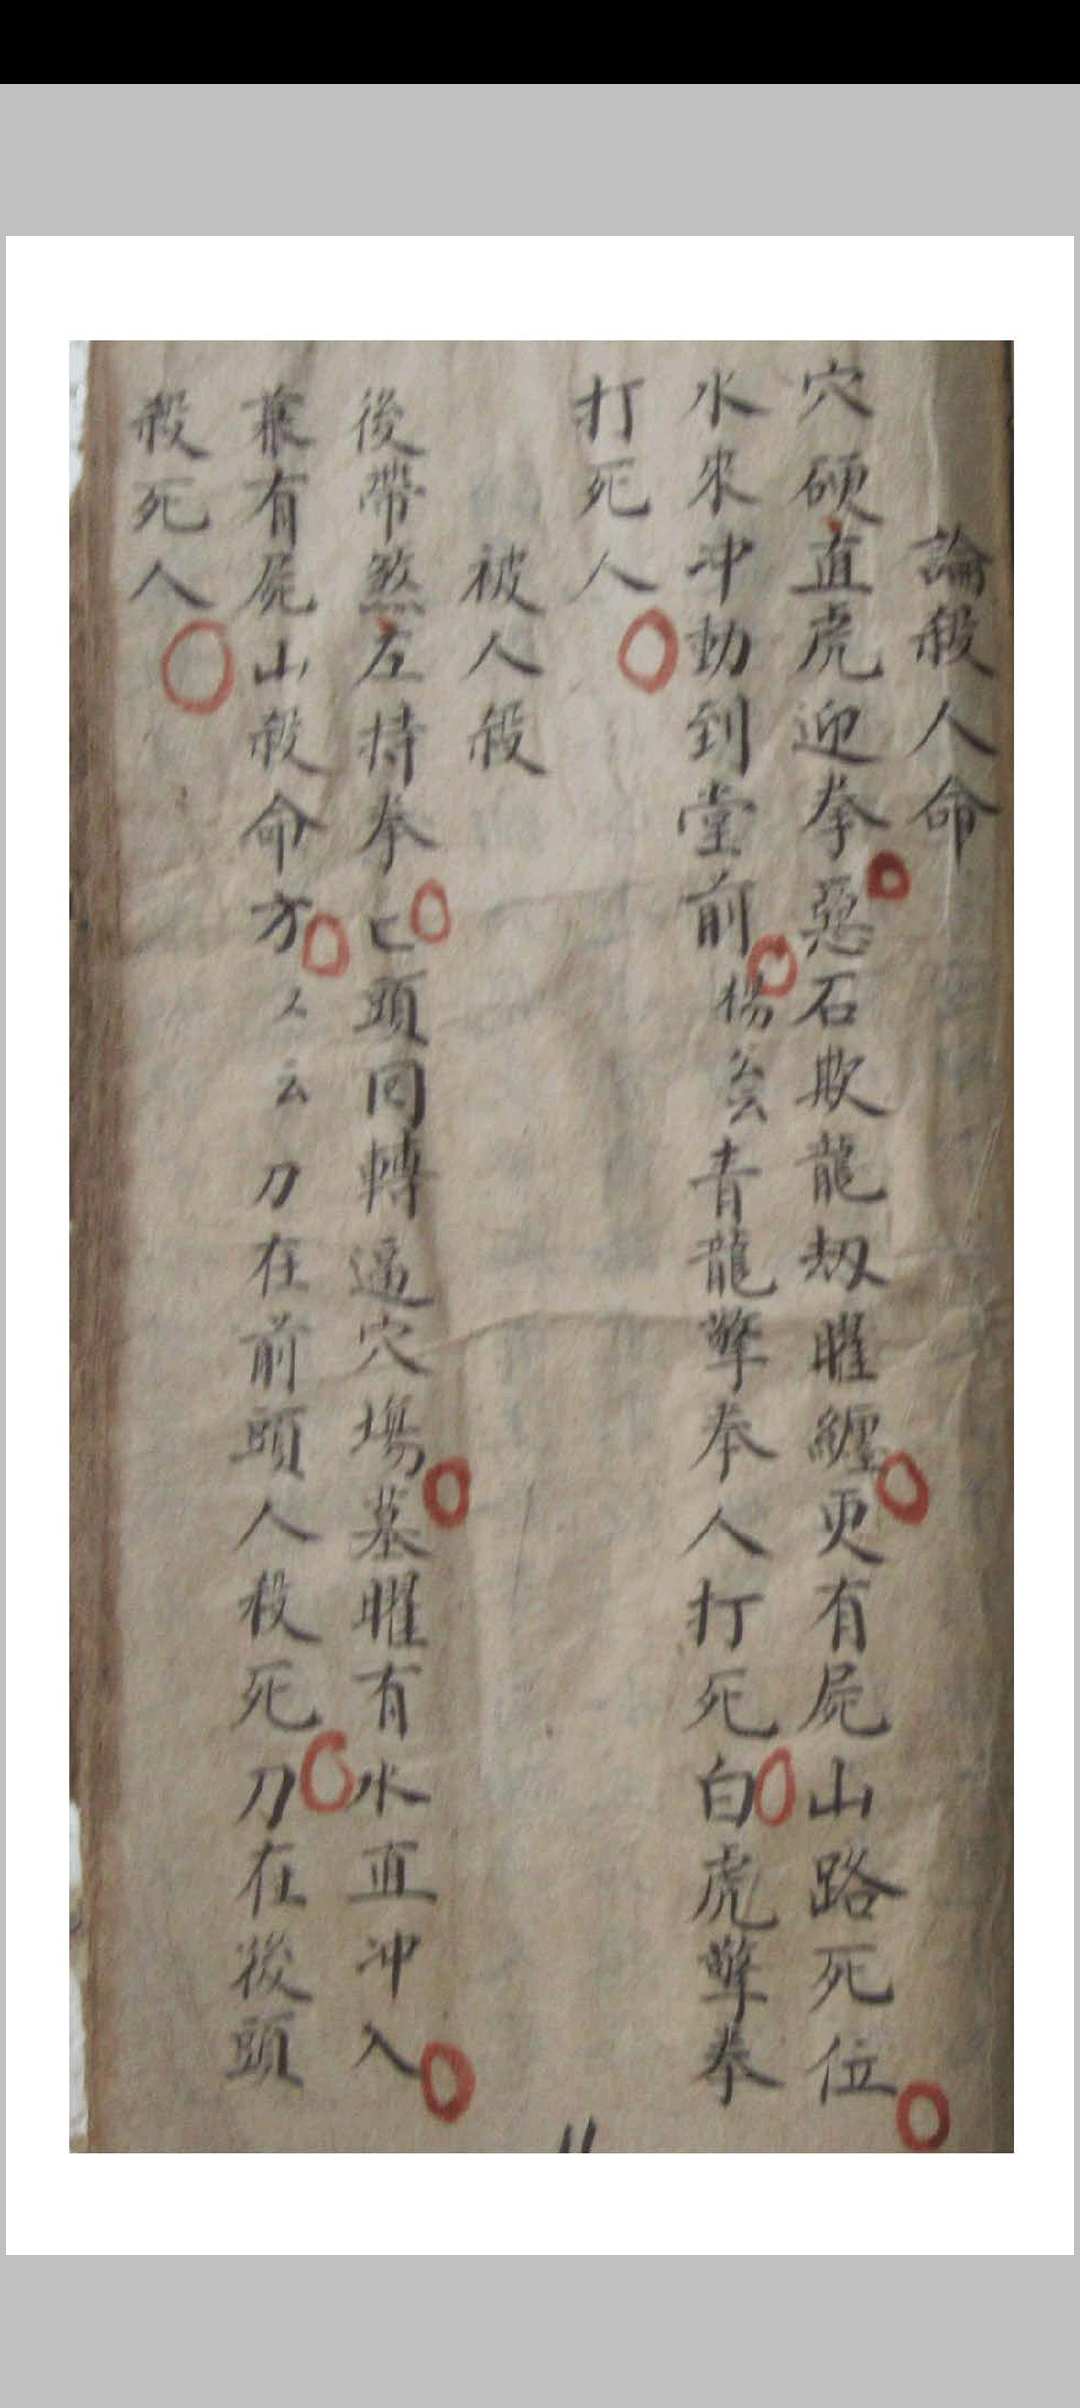 論殺人命
穴硬直虎迎拳惡石欺龍刼曜纏更有屍山路死位
水來冲動到堂前楊公云青龍擎拳人打死白虎擎拳
打死人
被人殺
後帶煞左持拳亡頭回轉逼穴塲墓曜有水直冲入
兼有屍山殺命方又云刀在前頭人殺死刀在後頭
殺死人